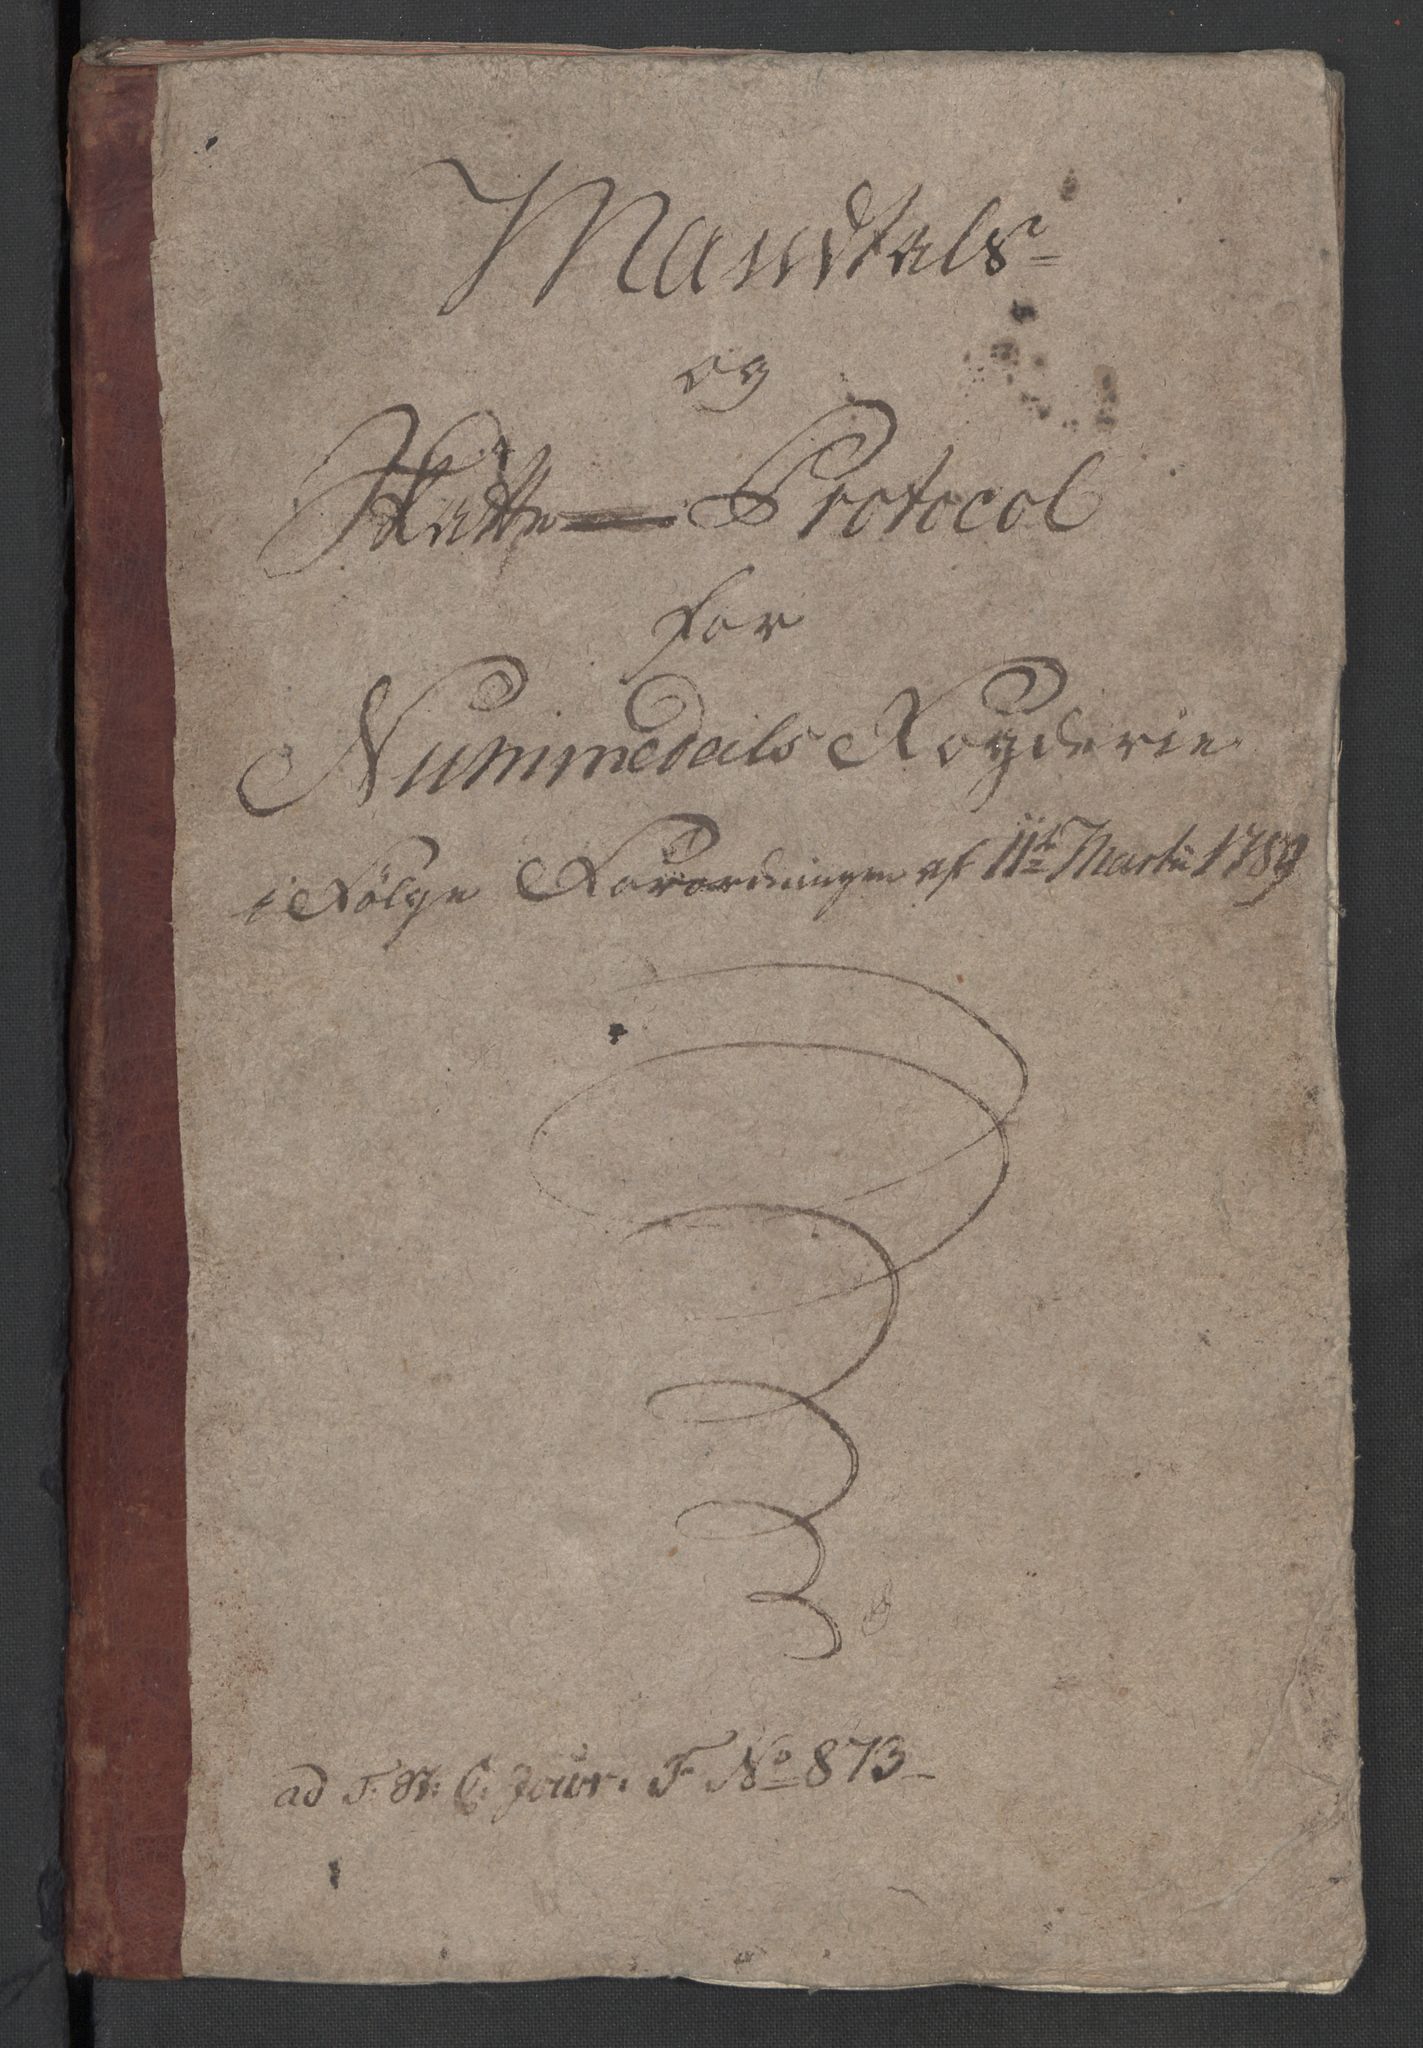 Mandtals-
og
Skatte-Protocol
for
Nummedals Fogderie
i Følge Forordningen af 11te Martii 1789
ad T. R. C. Jour. F No 873